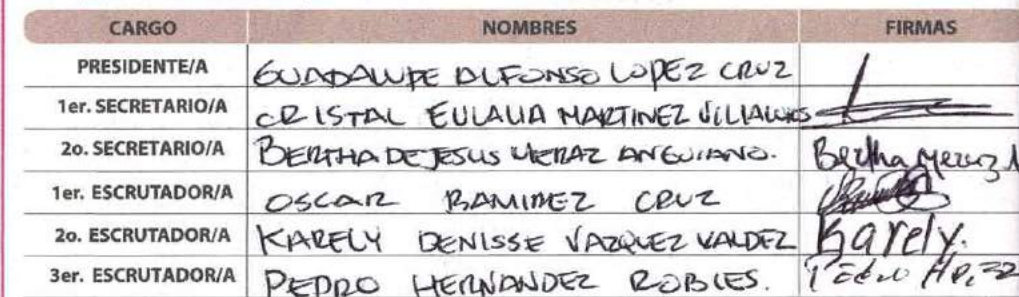 CARGO NOMBRES FIRMAS
PRESIDENTE/A GUADALUPE ALFONSO LOPEZ CRUZ
1er. SECRETARIO/A CRISTAL EULALIA MARTINEZ
2o. SECRETARIO/A BERTHA DE JESUS MERAZ ANGUIANO. Bertha Meraz A
1er. ESCRUTADOR/A OSCAR RAMIREZ CRUZ
2o. ESCRUTADOR/A KARELY DENISSE VAZQUEZ VALDEZ Karely.
3er. ESCRUTADOR/A PEDRO HERNANDEZ ROBLES. Pedro